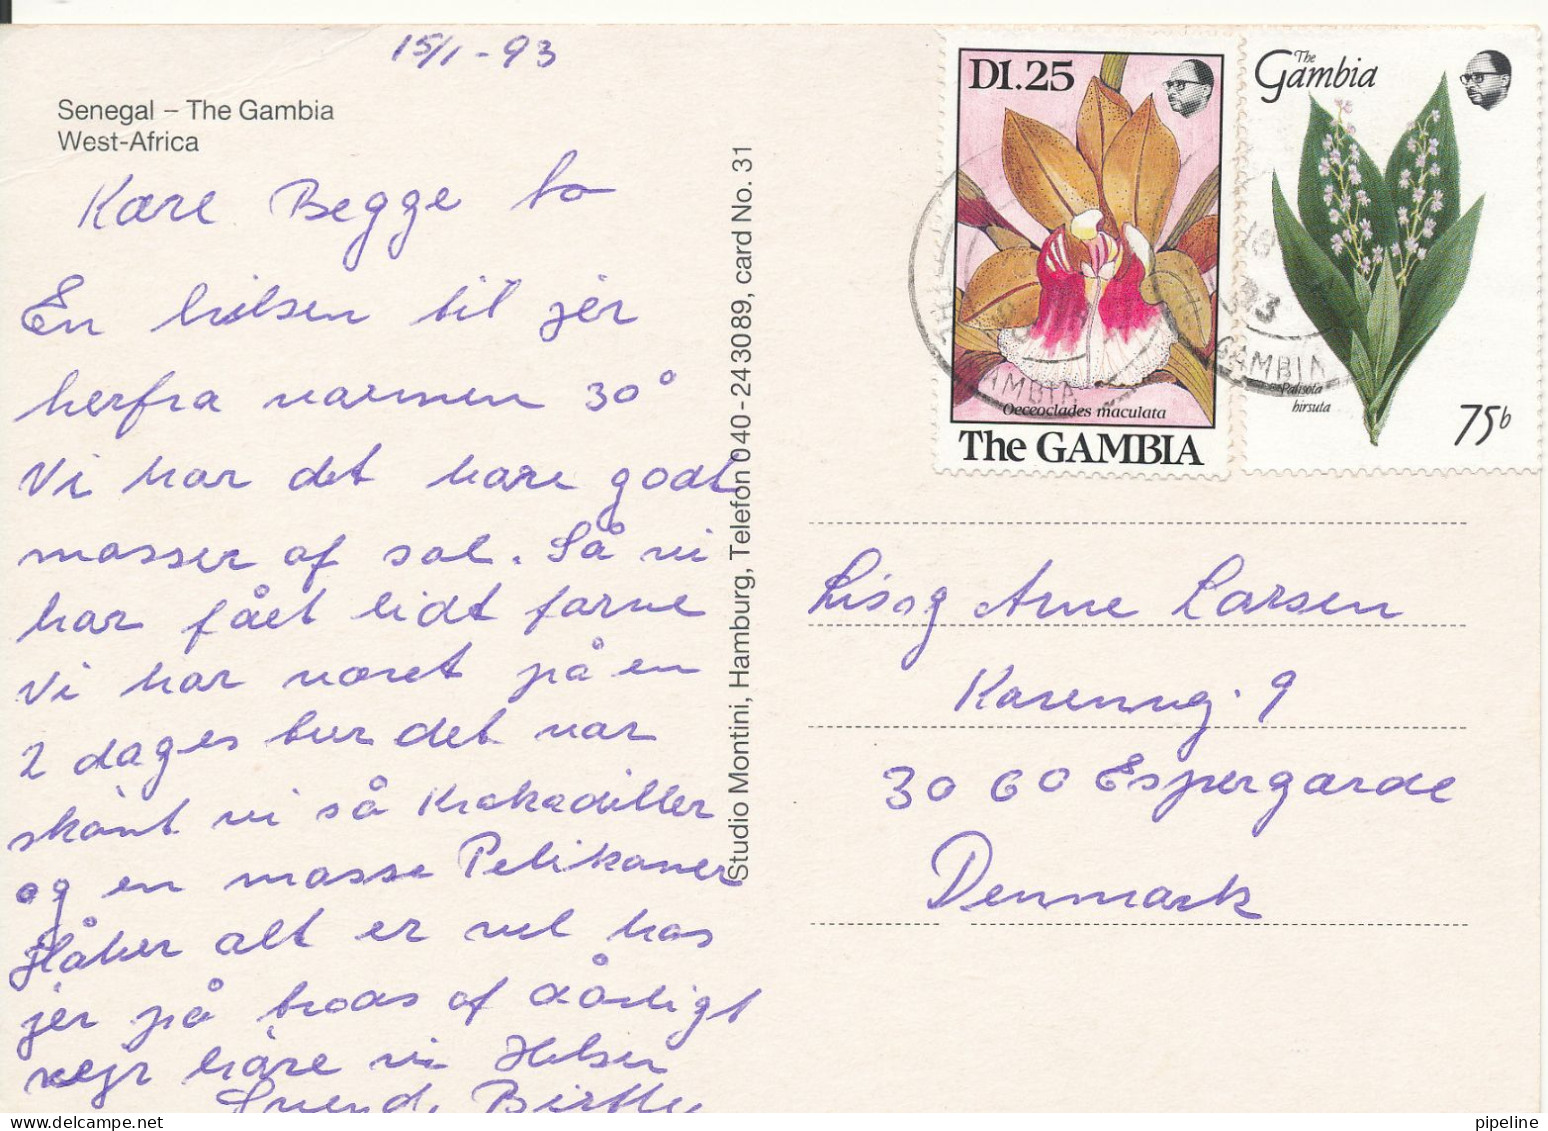 15/1-93
Senegal – The Gambia
West-Africa
Kære Begge to
En hilsen til jer
herfra varmen 30°
Vi har det bare godt
masser af sol. Så vi
har fået lidt farve
Vi har været på en
2 dages tur det var
skønt vi så Krokodiller
og en masse Pelikaner
Håber alt er vel hos
jer på trods af dårligt
vejr høre vi Hilsen
Svend, Birthe
Studio Montini, Hamburg, Telefon 040-243089, card No. 31
D1.25
Oeceoclades maculata
The GAMBIA
The
Gambia
Palisota
hirsuta
75b
18
93
GAMBIA
AMBIA
Lis og Arne Larsen
Karenvej. 9
3060 Espergærde
Denmark
pipeline